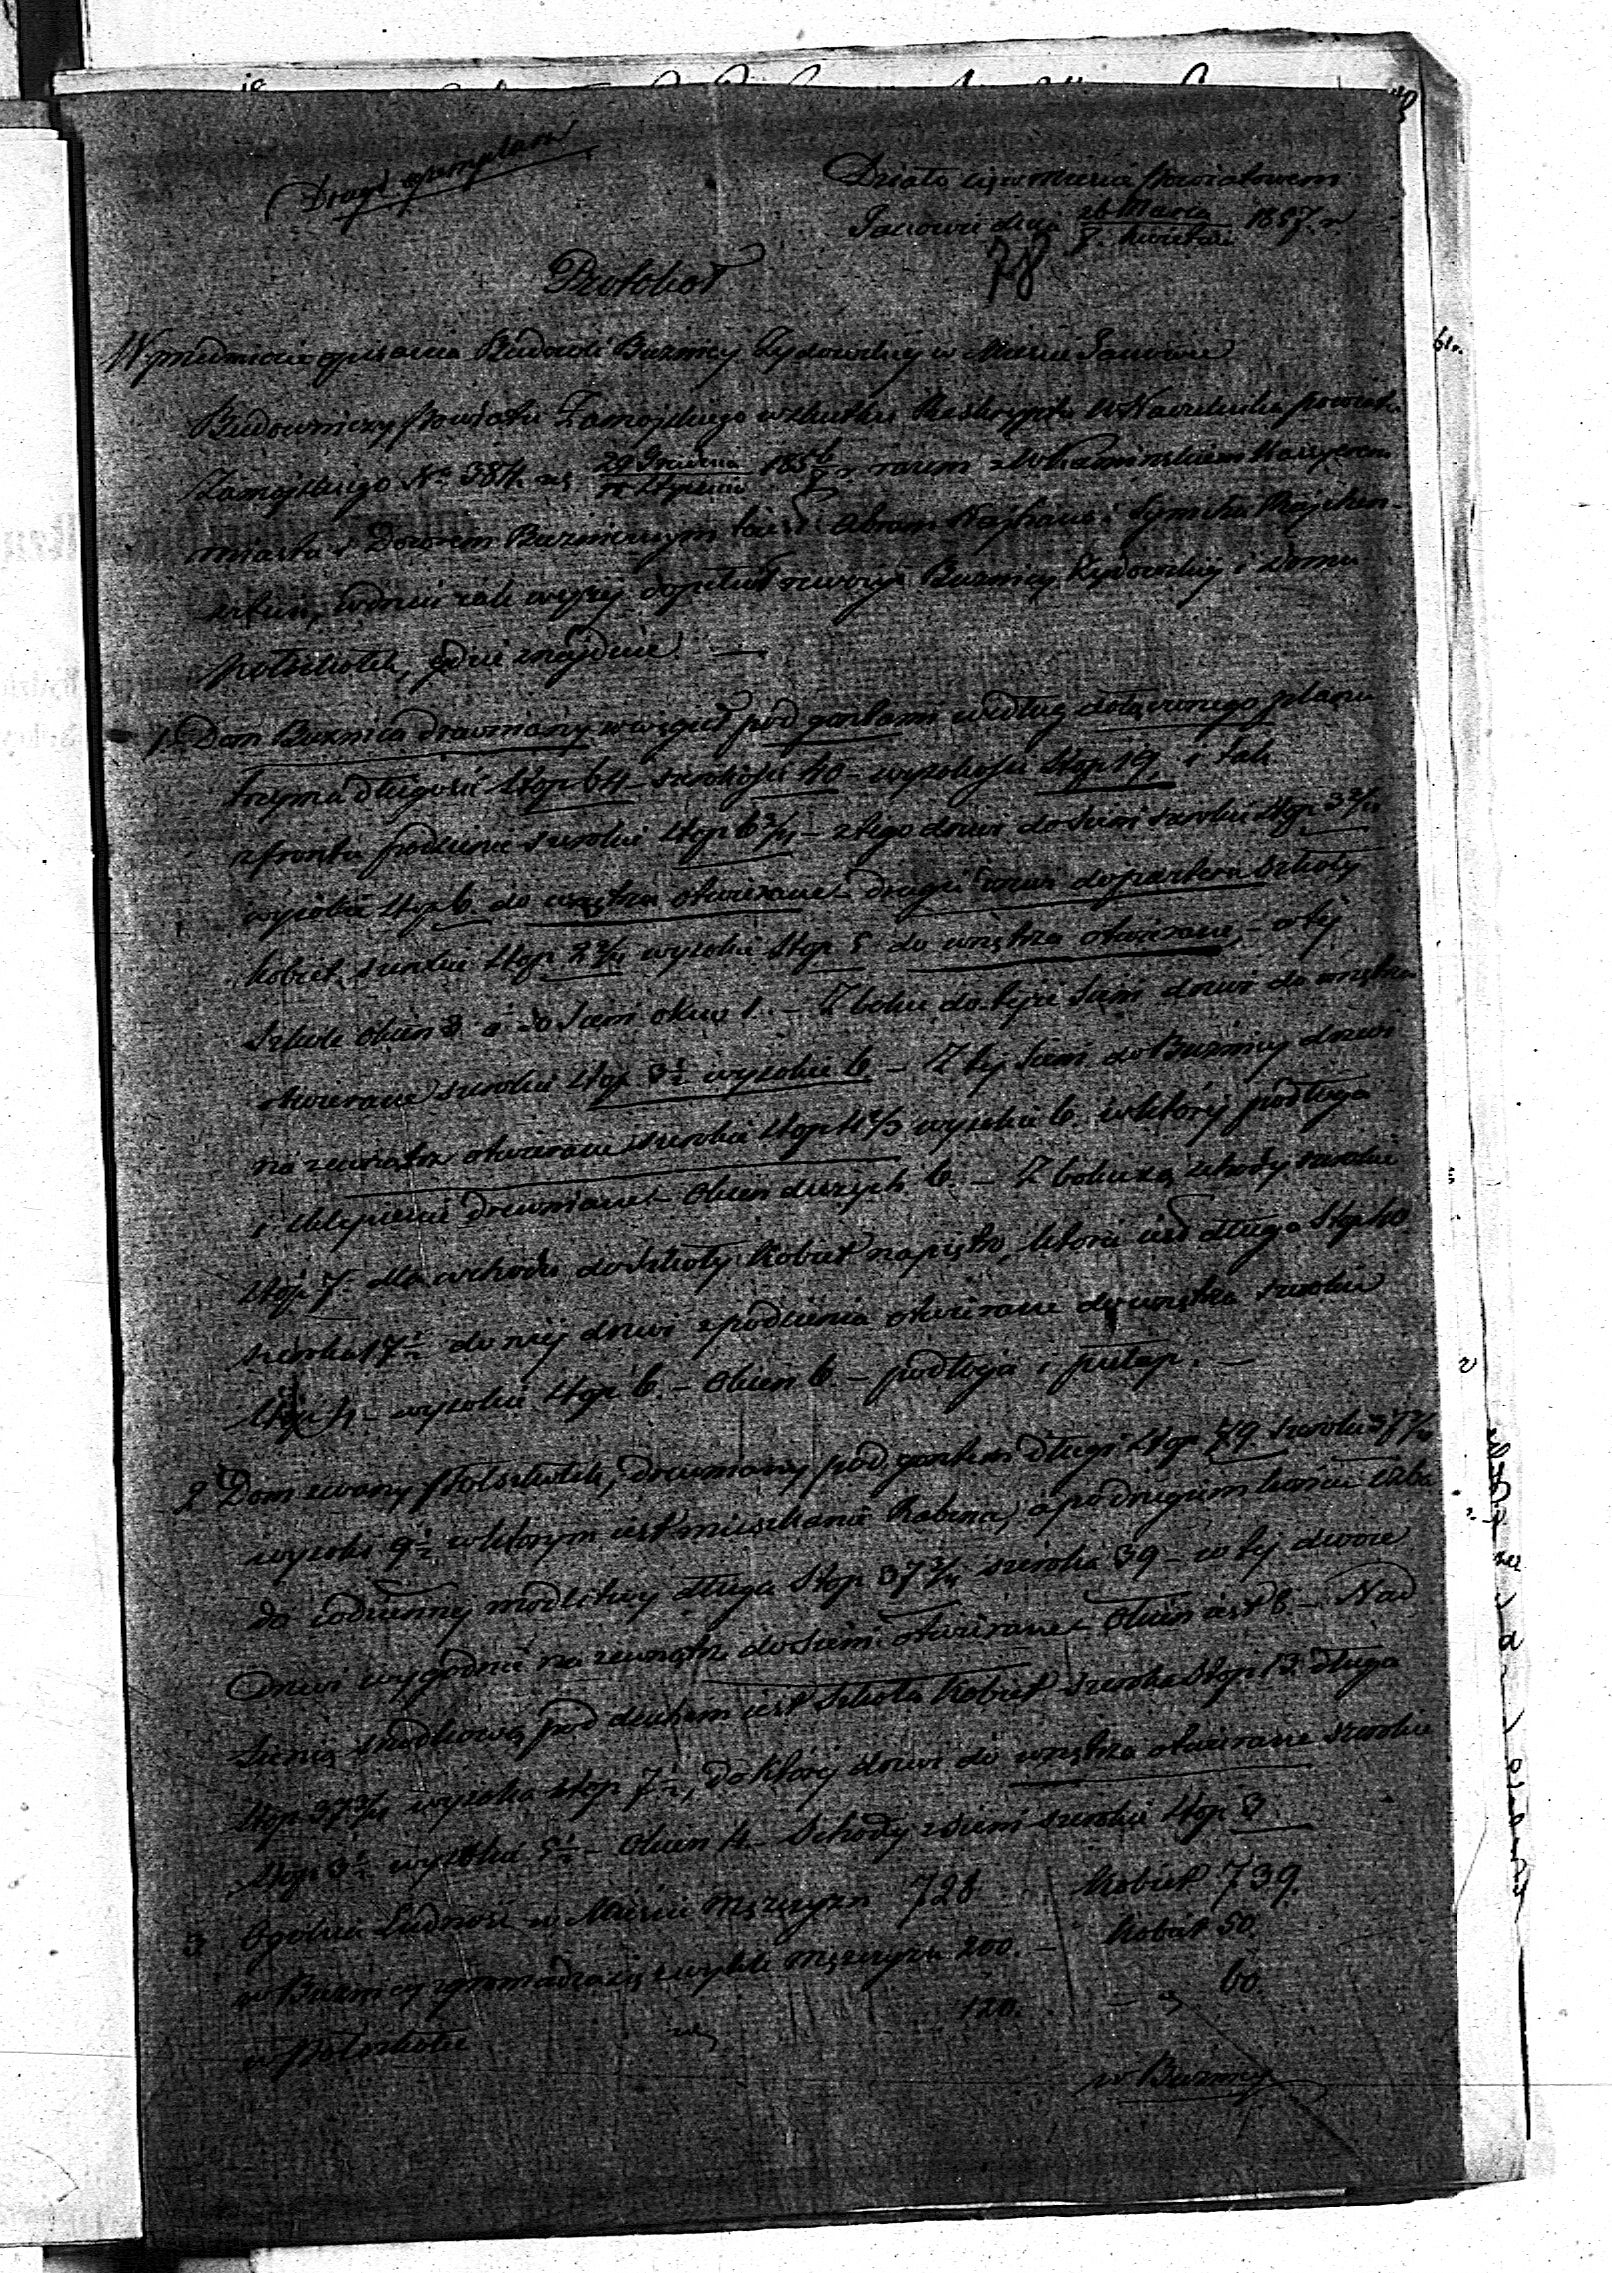 Drugi exemplarz
Działo się w mieście powiatowem
Janowie dnia 26 Marca / 7. Kwietnia 1857 r
78
Protokoł
W przedmiocie opisania Budowli Buznicy Żydowskiey w Mieście Janowie
Budowniczy Powiatu Zamojskiego w skutku Reskryptu W Naczelnika powiatu
Zamojskiego No 384 z 29 Grudnia / Stycznia 1856/7 r razem z Kaminskim Kassyerem
miasta i Dozorem Buzniczym to iest Abram i Szmul
zszedł rewizyi Buznicy Żydowskiey i Domu
Połszkołek, gdzie znajduie. —
1. Dom Buznica drewniany w węgieł pod gontami według dołączonego planu
trzyma długości stop 64 – szerokości 40 – wysokości stop 19, i tak
z frontu podcienie szerokie stop 6 3/4 – z tego drzwi do sieni szerokie stop 3
wysokie stop 6 do wnętrza otwierane – drugie drzwi do parteru szkoły
kobiet szerokie stop 2 wysokie stop 5 do wnętrza otwierane, – w tej
szkole okien 3 a do sieni okno 1. – Z boku do tejże sieni drzwi do wnętrza
otwierane szerokie stop 3 1/2 wysokie 6 – Z tej sieni do Buznicy drzwi
na zewnątrz otwierane szerokie stop 4 2/3 wysokie 6. w którey podłoga
i sklepienie drewniane – Okien dużych 6. – Z boku są schody szerokie
stop 7 dla wchodu do szkoły kobiet na piętro, która iest długa stop 40
szeroka 17 1/2 do niej drzwi z podcienia otwierane do wnętrza szerokie
stop 4 – wysokie stop 6. – Okien 6 – podłoga i pułap. —
2 Dom zwany Połszkołek, drewniany pod gontem długi stop 79 szeroki 37
wysoki 9 1/2 w którym iest mieszkanie Rabina, a po drugim końcu izba
do codzienney modlitwy długa stop 37 szeroka 39 – w tej dwoie
Drzwi wygodnie na zewnątrz do sieni otwierane – Okien iest 8 – Nad
sienią środkową pod dachem iest szkoła kobiet szeroka stop 13 długa
stop 37 wysoka stop 7 1/2, do którey drzwi do wnętrza otwierane szerokie
stop 3 1/2 wysokie 5 1/2 – Okien 4. – Schody z sieni szerokie stop 3
3 Ogólna Ludność w Mieście Męzczyzn 728 Kobiet 739.
w Buznicy zgromadza się zwykle męzczyzn 200. – Kobiet 50.
w Połszkołku 120. – " 60.
w Buznicy